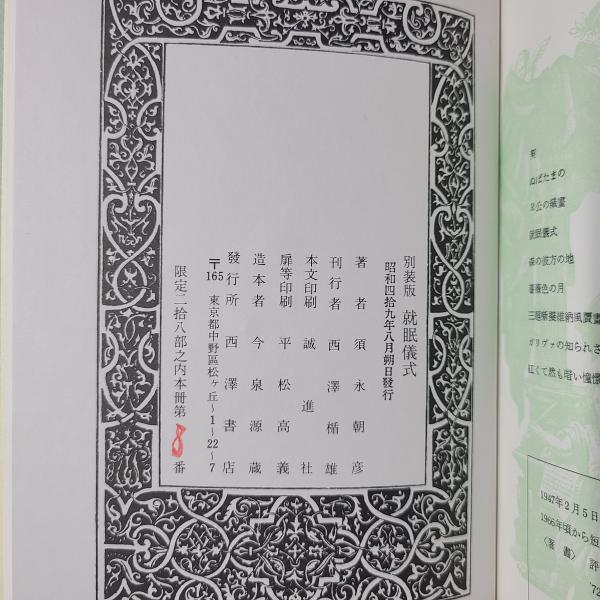 別装版 就眠儀式
昭和四拾九年八月朔日發行
著者 須永朝彦
刊行者 西澤楯雄
本文印刷 誠進社
扉等印刷 平松高義
造本者 今泉源蔵
發行所 西澤書店
〒165 東京都中野區松ヶ丘〜1〜22〜7
限定二拾八部之内本冊第8番
契
ぬばたまの
就眠儀式
森の彼方の地
薔薇色の月
ガリヴァの知られざ
紅くて然も暗い憧憬
1947年2月5日
1966年頃から短
〈著書〉 評
'72